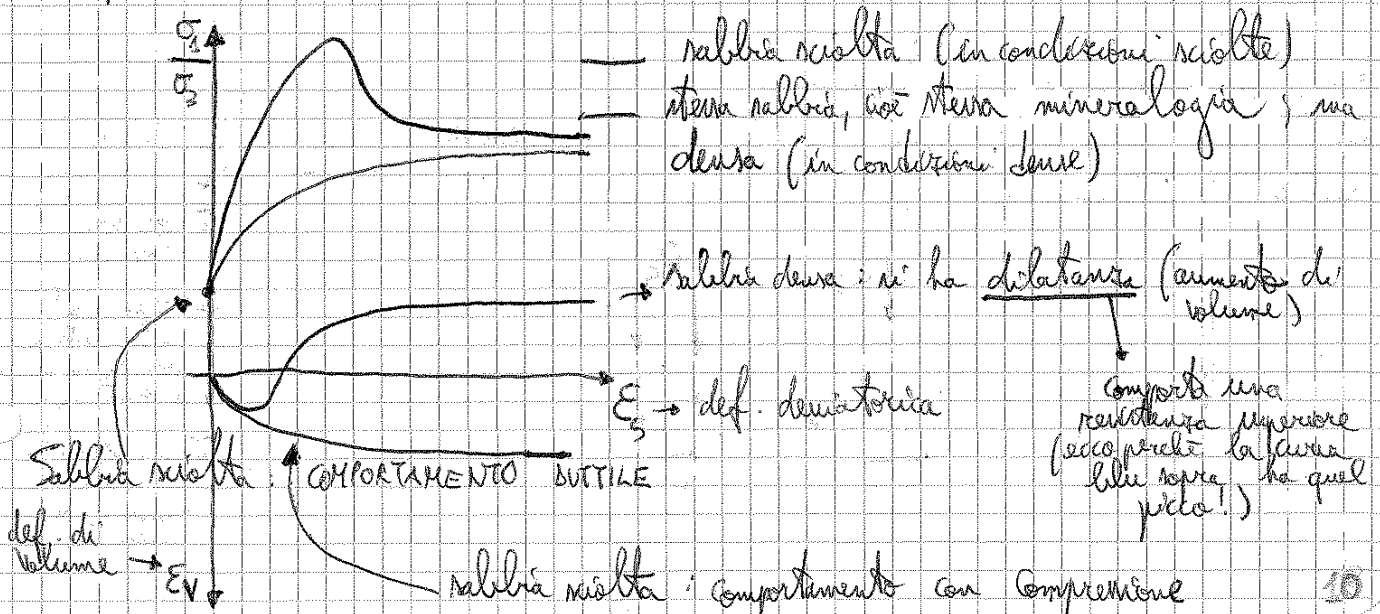 σ1
σ3
sabbia sciolta (in condizioni sciolte)
stessa sabbia, cioè stessa mineralogia, ma
densa (in condizioni dense)
→ sabbia densa: si ha dilatanza (aumento di
volume)
comporta una
resistenza superiore
(ecco perché la curva
blu sopra ha quel
picco!)
εs → def. deviatorica
Sabbia sciolta: COMPORTAMENTO DUTTILE
def. di
volume →
εv
sabbia sciolta: comportamento con compressione
10